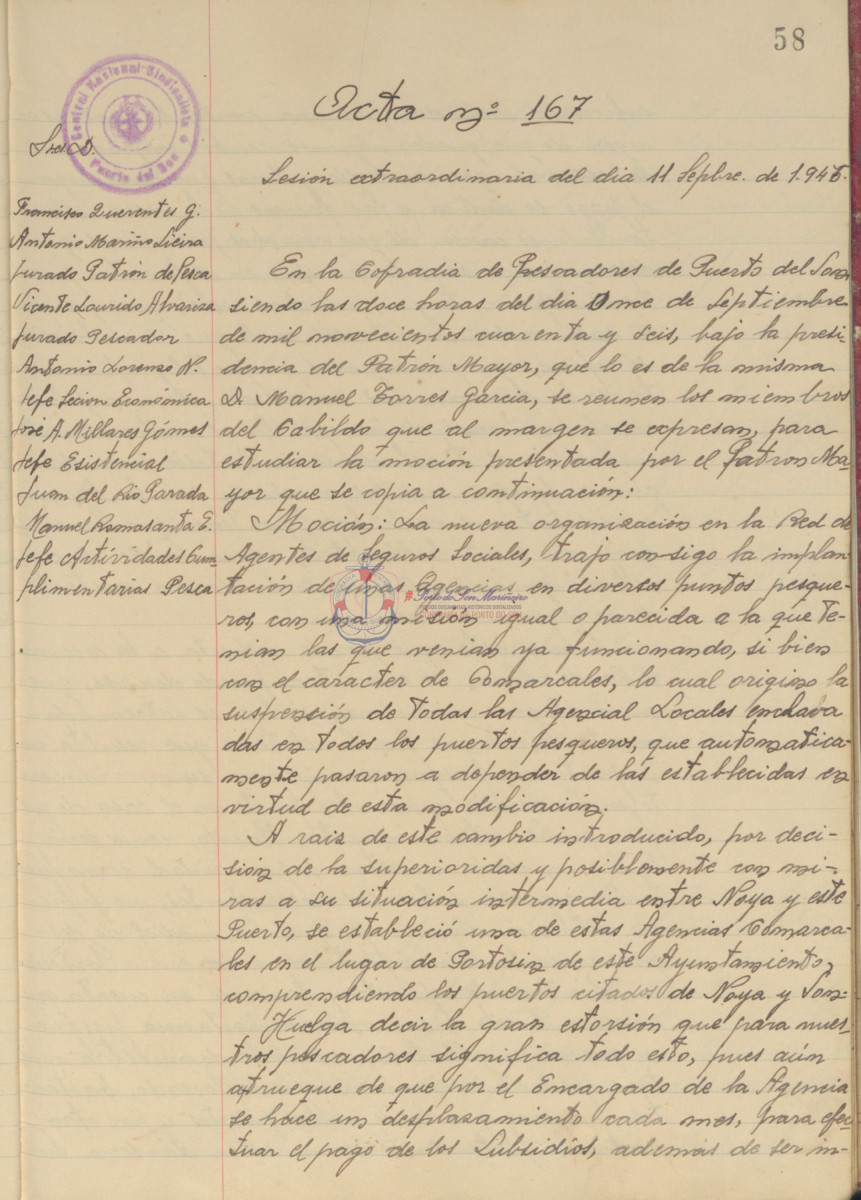 58
Acta nº 167
Central Nacional Sindicalista
Puerto del Son
Sres. D.
Sesión extraordinaria del dia 11 Sepbre. de 1.946.
Francisco Querentes G.
Antonio Mariño Lieira
Jurado Patrón de Pesca
Vicente Lourido Alvariza
Jurado Pescador
Antonio Lorenzo N.
Jefe Secion Económica
José A. Millares Gómes
Jefe Esistencial
Juan del Rio Parada
Manuel Ramasanta E.
Jefe Actividades Cum-
plimentarias Pesca
En la Cofradia de Pescadores de Puerto del Son,
siendo las doce horas del dia Once de Septiembre
de mil novecientos cuarenta y seis, bajo la presi-
dencia del Patrón Mayor, que lo es de la misma
D. Manuel Torres Garcia, se reunen los miembros
del Cabildo que al margen se expresan, para
estudiar la moción presentada por el Patron Ma-
yor que se copia a continuación:
Moción: La nueva organización en la Red de
Agentes de Seguros Sociales, trajo con-sigo la implan-
tación de unas Agencias en diversos puntos pesque-
ros, con una misión igual o parecida a la que te-
nian las que venian ya funcionando, si bien
con el caracter de Comarcales, lo cual origino la
suspensión de todas las Agencial Locales enclava
das en todos los puertos pesqueros, que automatica-
mente pasaron a depender de las establecidas en
virtud de esta modificación.
A rais de este cambio introducido, por deci-
sión de la superioridas y posiblemente con mi-
ras a su situación intermedia entre Noya y este
Puerto, se estableció una de estas Agencias Comarca-
les en el lugar de Portosin de este Ayuntamiento,
comprendiendo los puertos citados de Noya y Son-
Huelga decir la gran estorsión que para nues-
tros pescadores significa todo esto, pues aún
atrueque de que por el Encargado de la Agencia
se hace un desplazamiento cada mes, para efec-
tuar el pago de los Subsidios, además de ser in-
#Porto do Son Mariñeiro